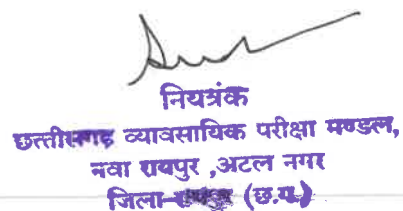 नियत्रंक
छत्तीसगढ़ व्यावसायिक परीक्षा मण्डल,
नवा रायपुर ,अटल नगर
जिला (छ.ग.)